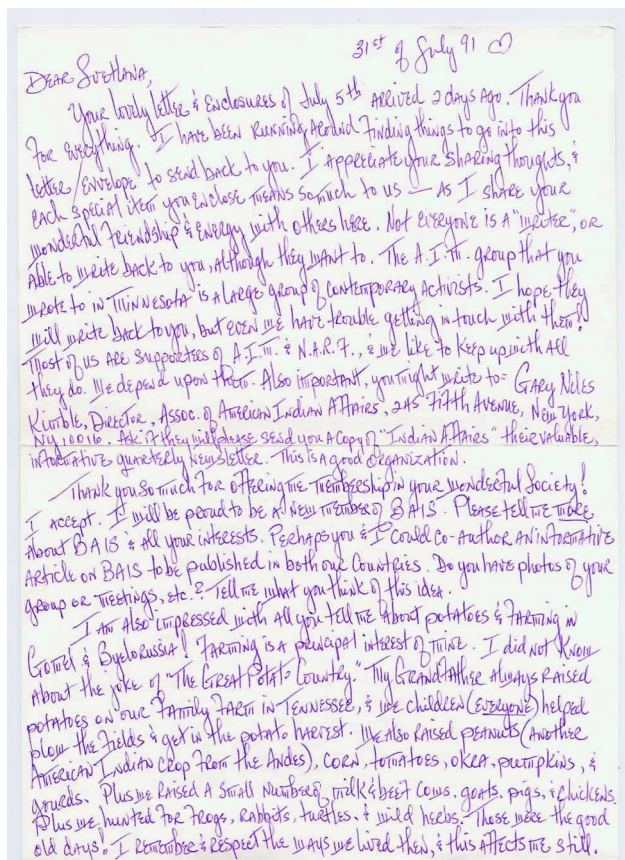 31st of July 91 ♡
Dear Svetlana,
Your lovely letter & enclosures of July 5th arrived 2 days ago. Thank you
for everything. I have been running around finding things to go into this
letter/envelope to send back to you. I appreciate your sharing thoughts, &
each special item you enclose means so much to us — as I share your
wonderful friendship & energy with others here. Not everyone is a "writer", or
able to write back to you, although they want to. The A.I.M. group that you
wrote to in Minnesota is a large group of contemporary activists. I hope they
will write back to you, but even we have trouble getting in touch with them!
Most of us are supporters of A.I.M. & N.A.R.F., & we like to keep up with all
they do. We depend upon them. Also important, you might write to: Gary Niles
Kimble, Director, Assoc. of American Indian Affairs, 245 Fifth Avenue, New York,
NY 10016. Ask if they will please send you a copy of "Indian Affairs" their valuable,
informative quarterly newsletter. This is a good organization.
Thank you so much for offering me membership in your wonderful Society!
I accept. I will be proud to be a new member of BAIS. Please tell me more
about BAIS & all your interests. Perhaps you & I could co-author an informative
article on BAIS to be published in both our countries. Do you have photos of your
group or meetings, etc.? Tell me what you think of this idea.
I am also impressed with all you tell me about potatoes & farming in
Gomel & Byelorussia! Farming is a principal interest of mine. I did not know
about the joke of "The Great Potato Country." My Grandfather always raised
potatoes on our family farm in Tennessee, & we children (everyone) helped
plow the fields & get in the potato harvest. We also raised peanuts (another
American Indian crop from the Andes), corn, tomatoes, okra, pumpkins, &
gourds. Plus we raised a small number of milk & beef cows, goats, pigs, & chickens.
Plus we hunted for frogs, rabbits, turtles, & wild herbs. Those were the good
old days! I remember & respect the ways we lived then, & this affects me still.